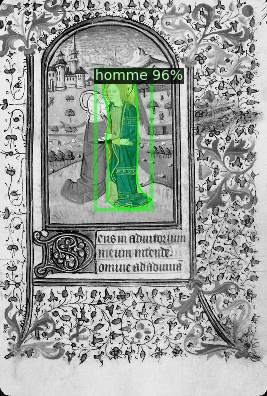 homme 96%
Deus in adiutorium
meum intende
omine ad adiuua